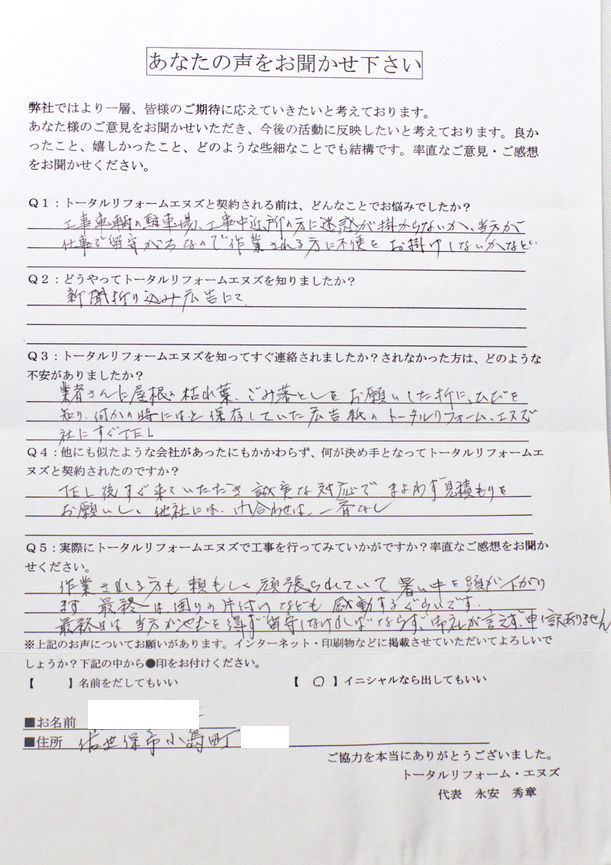 あなたの声をお聞かせ下さい
弊社ではより一層、皆様のご期待に応えていきたいと考えております。
あなた様のご意見をお聞かせいただき、今後の活動に反映したいと考えております。良か
ったこと、嬉しかったこと、どのような些細なことでも結構です。率直なご意見・ご感想
をお聞かせください。
Q1：トータルリフォームエヌズと契約される前は、どんなことでお悩みでしたか？
工事車輌の駐車場、工事中近所の方に迷惑が掛からないか、当方が
仕事で留守がちなので作業される方に不便をお掛けしないかなど…
Q2：どうやってトータルリフォームエヌズを知りましたか？
新聞折り込み広告にて
Q3：トータルリフォームエヌズを知ってすぐ連絡されましたか？されなかった方は、どのような
不安がありましたか？
業者さんに屋根の枯れ葉、ごみ落としをお願いした折に、ひびを
知り、何かの時にはと保存していた広告紙のトータルリフォーム、エヌズ
社にすぐTEL
Q4：他にも似たような会社があったにもかかわらず、何が決め手となってトータルリフォームエ
ヌズと契約されたのですか？
TEL後すぐ来ていただき誠実な対応でまよわず見積もりを
お願いし、他社には、け合わせは、一番なし
Q5：実際にトータルリフォームエヌズで工事を行ってみていかがですか？率直なご感想をお聞か
せください。
作業される方も頼もしく頑張られていて暑い中を頭が下がり
ます。最終は周りの片付けなども感動するぐらいです。
最終日は当方がやむを得ず留守しなければならず、御礼が言えず、申し訳ありません
※上記のお声についてお願いがあります。インターネット・印刷物などに掲載させていただいてよろしいで
しょうか？下記の中から●印をお付けください。
【　　】名前をだしてもいい　【 ○ 】イニシャルなら出してもいい
■お名前
■住所　佐世保市小島町
ご協力を本当にありがとうございました。
トータルリフォーム・エヌズ
代表　永安　秀章